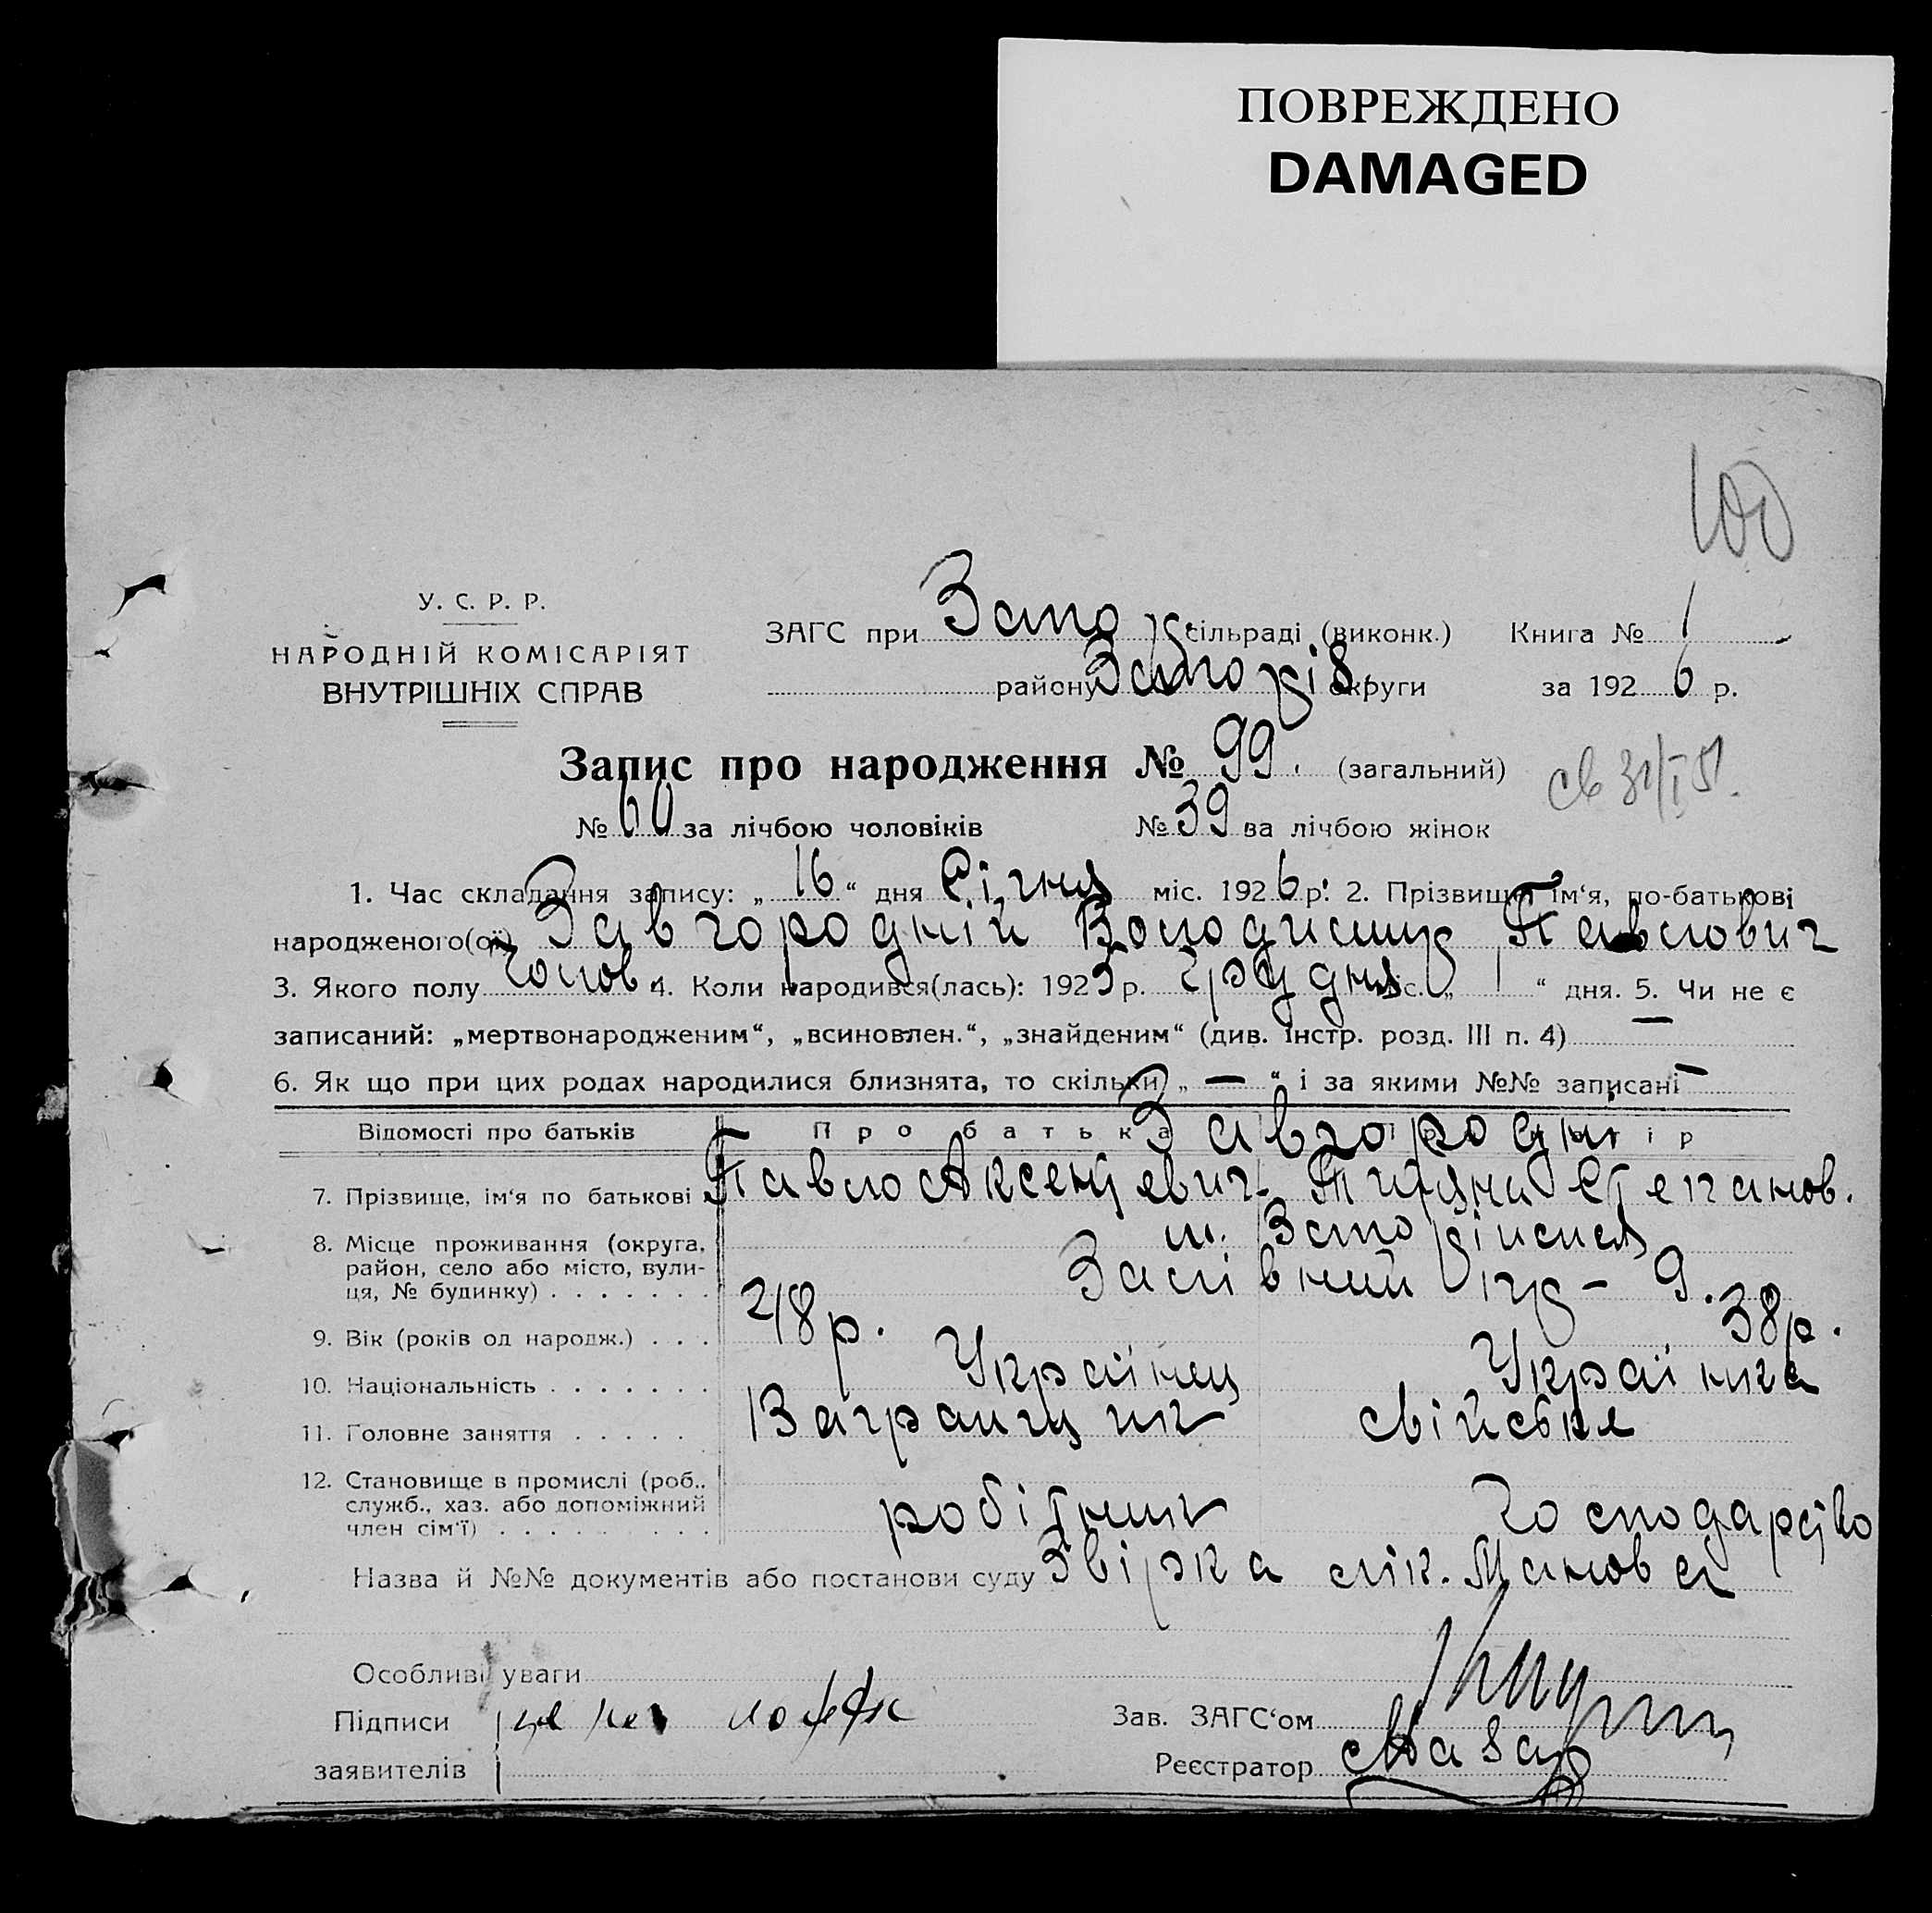 ПОВРЕЖДЕНО
DAMAGED
100
У. С. Р. Р.
НАРОДНІЙ КОМІСАРІЯТ
ВНУТРІШНІХ СПРАВ
ЗАГС при Запор. сільраді (виконк.) Книга № 1
району Запоріз. округи за 1926 р.
Запис про народження № 99. (загальний)
№ 60 за лічбою чоловіків № 39 за лічбою жінок
1. Час складання запису: „ 16 “ дня Січня міс. 1926 р. 2. Прізвище, ім‘я, по-батькові
народженого(ої) Завгородній Володимир Павлович
3. Якого полу чолов. 4. Коли народився(лась): 1925 р. грудня міс. „ 1 “ дня. 5. Чи не є
записаний: „мертвонародженим“, „всиновлен.“, „знайденим“ (див. інстр. розд. III п. 4) —
6. Як що при цих родах народилися близнята, то скільки „ — “ і за якими №№ записані —
Відомості про батьків Про батька
Завгородні
7. Прізвище, ім‘я по батькові Павло Аксентєвич Тетяна Степанов.
8. Місце проживання (округа, район, село або місто, вулиця, № будинку) . . . . . . . м. Запоріжжя
9.
9. Вік (років од народж.) . . . 48 р. 38 р.
10. Національність . . . . . . . Українец Українка
11. Головне заняття . . . . . Вагранщик свійське
12. Становище в промислі (роб., служб., хаз. або допоміжний член сім‘ї) . . . . . . . . . робітник господарство
Назва й №№ документів або постанови суду Звірка лік.
Особливі уваги
Підписи
заявителів
Зав. ЗАГС‘ом
Реєстратор